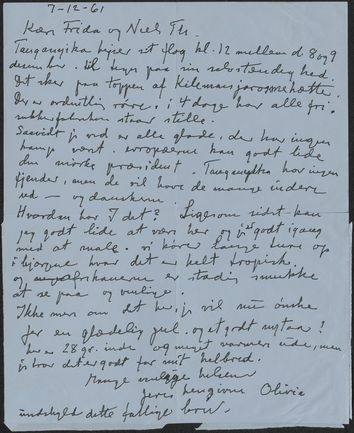 7-12-61
Kære Frida og Niels Th.
Tanganyika hejser sit flag kl. 12 mellem d 8 og 9
december. til tegn paa sin selvstændighed.
Det sker paa toppen af Kilemanjaros
Der er ordentlig røre. i 4 dage har alle fri.
staar stille.
Saavidt jeg ved er alle glade, der har ingen
kamp vært. europæerne kan godt lide
den mørke præsident. Tanganyika har ingen
fjender, men de vil have de mange indere
ud — og danskerne.
Hvordan har I det? Ligesom sidst kan
jeg godt lide at være her og jeg er godt igang
med at male. vi kører lange ture op
i bjergene hvor det er helt tropisk.
og afrikanerne er stadig smukke
at se paa og venlige.
Ikke mere om det her, jeg vil nu ønske
Jer en glædelig jul. og et godt nytaar!
her er 28 gr. inde og meget varmere ude, men
jeg tror det er godt for mit helbred.
Mange venlige hilsen
Jeres hengivne Olivia
undskyld dette fattige brev.